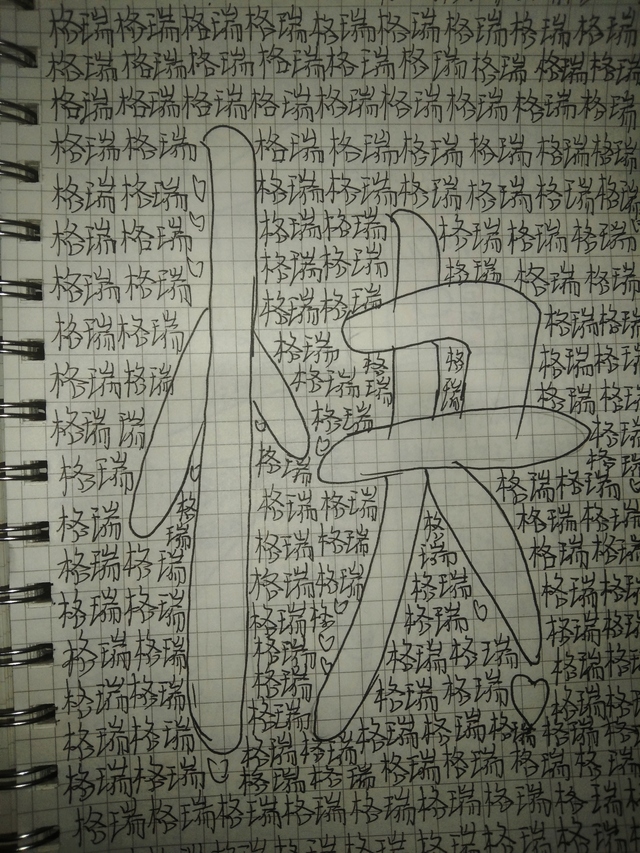 格瑞格瑞格瑞格瑞格瑞格瑞格瑞格瑞格瑞
格瑞格瑞格瑞格瑞格瑞格瑞格瑞格瑞格瑞
格瑞格瑞格瑞格瑞格瑞格瑞格瑞格瑞格瑞
格瑞格瑞格瑞格瑞格瑞格瑞格瑞格瑞
格瑞格瑞格瑞格瑞格瑞格瑞格瑞格瑞
格瑞格瑞格瑞格瑞格瑞格瑞格瑞
格瑞格瑞格瑞格瑞格瑞格瑞格瑞
格瑞格瑞格瑞格瑞格瑞格瑞
格瑞格瑞格瑞格瑞格瑞格瑞格瑞
格瑞瑞格瑞格瑞
格瑞格瑞格瑞格瑞
格瑞格瑞格瑞格瑞格瑞格瑞
格瑞格瑞格瑞格瑞格瑞格瑞
格瑞格瑞格瑞格瑞格瑞格瑞
格瑞格瑞格瑞格瑞格瑞
格瑞格瑞格瑞格瑞格瑞格瑞
格瑞格瑞格瑞格瑞格瑞格瑞
格瑞格瑞格瑞格瑞格瑞格瑞格瑞格瑞
格瑞格瑞格瑞格瑞格瑞格瑞格瑞
格瑞格瑞格瑞格瑞格瑞格瑞格瑞格瑞
快